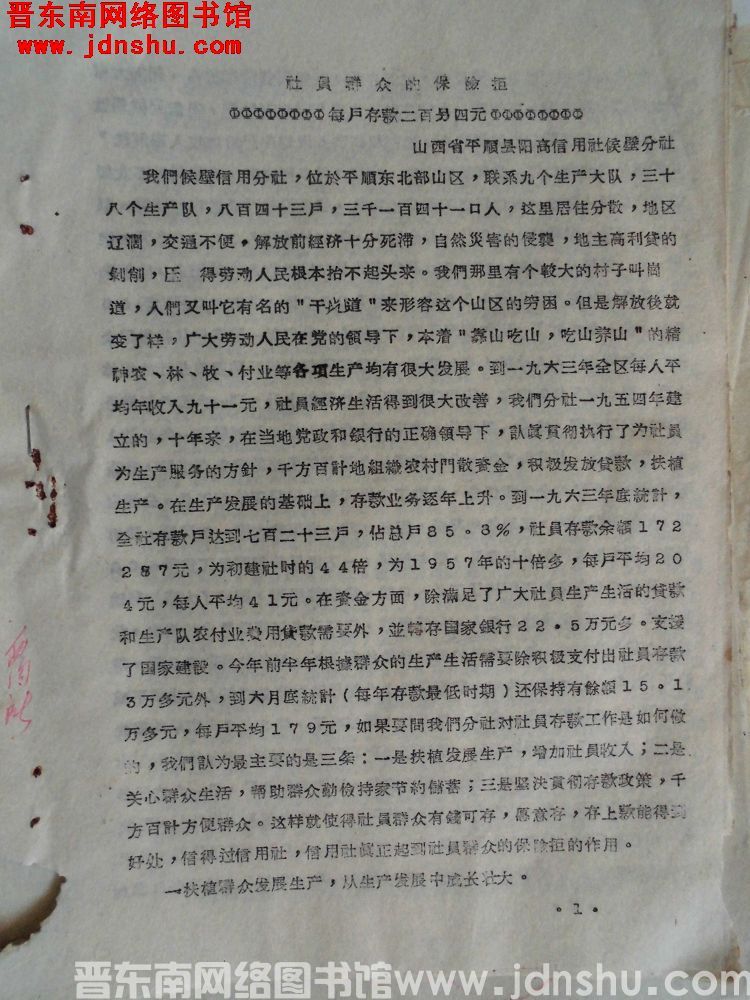 晋东南网络图书馆
www.jdnshu.com
社員群众的保險拒
每戶存款二百另四元
山西省平順县阳高信用社候壁分社
我們候壁信用分社，位於平順东北部山区，联系九个生产大队，三十
八个生产队，八百四十三戶，三千一百四十一口人，这里居住分散，地区
辽濶，交通不便。解放前經济十分死滞，自然災害的侵襲，地主高利貸的
剝削，压 得劳动人民根本抬不起头来。我們那里有个較大的村子叫崗
道，人們又叫它有名的"干炭道"来形容这个山区的穷困。但是解放後就
变了样，广大劳动人民在党的領导下，本着"靠山吃山，吃山养山"的精
神农、林、牧、付业等各項生产均有很大发展。到一九六三年全区每人平
均年收入九十一元，社員經济生活得到很大改善，我們分社一九五四年建
立的，十年来，在当地党政和銀行的正确領导下，認眞貫彻执行了为社員
为生产服务的方針，千方百計地組織农村閑散資金，积极发放貸款，扶植
生产。在生产发展的基础上，存款业务逐年上升。到一九六三年底統計，
全社存款戶达到七百二十三戶，佔总戶85.8%，社員存款余額172
287元，为初建社时的44倍，为1957年的十倍多，每戶平均20
4元，每人平均41元。在資金方面，除滿足了广大社員生产生活的貸款
和生产队农付业費用貸款需要外，並轉存国家銀行22.5万元多。支援
了国家建設。今年前半年根據群众的生产生活需要除积极支付出社員存款
3万多元外，到六月底統計(每年存款最低时期)还保持有餘額15.1
万多元，每戶平均179元，如果要問我們分社对社員存款工作是如何做
的，我們認为最主要的是三条：一是扶植发展生产，增加社員收入；二是
关心群众生活，帮助群众勤儉持家节約儲蓄；三是坚决貫彻存款政策，千
方百計方便群众。这样就使得社員群众有錢可存，愿意存，存上款能得到
好处，信得过信用社，信用社眞正起到社員群众的保險拒的作用。
一扶植群众发展生产，从生产发展中成长壮大。
。1。
晋东南网络图书馆www.jdnshu.com